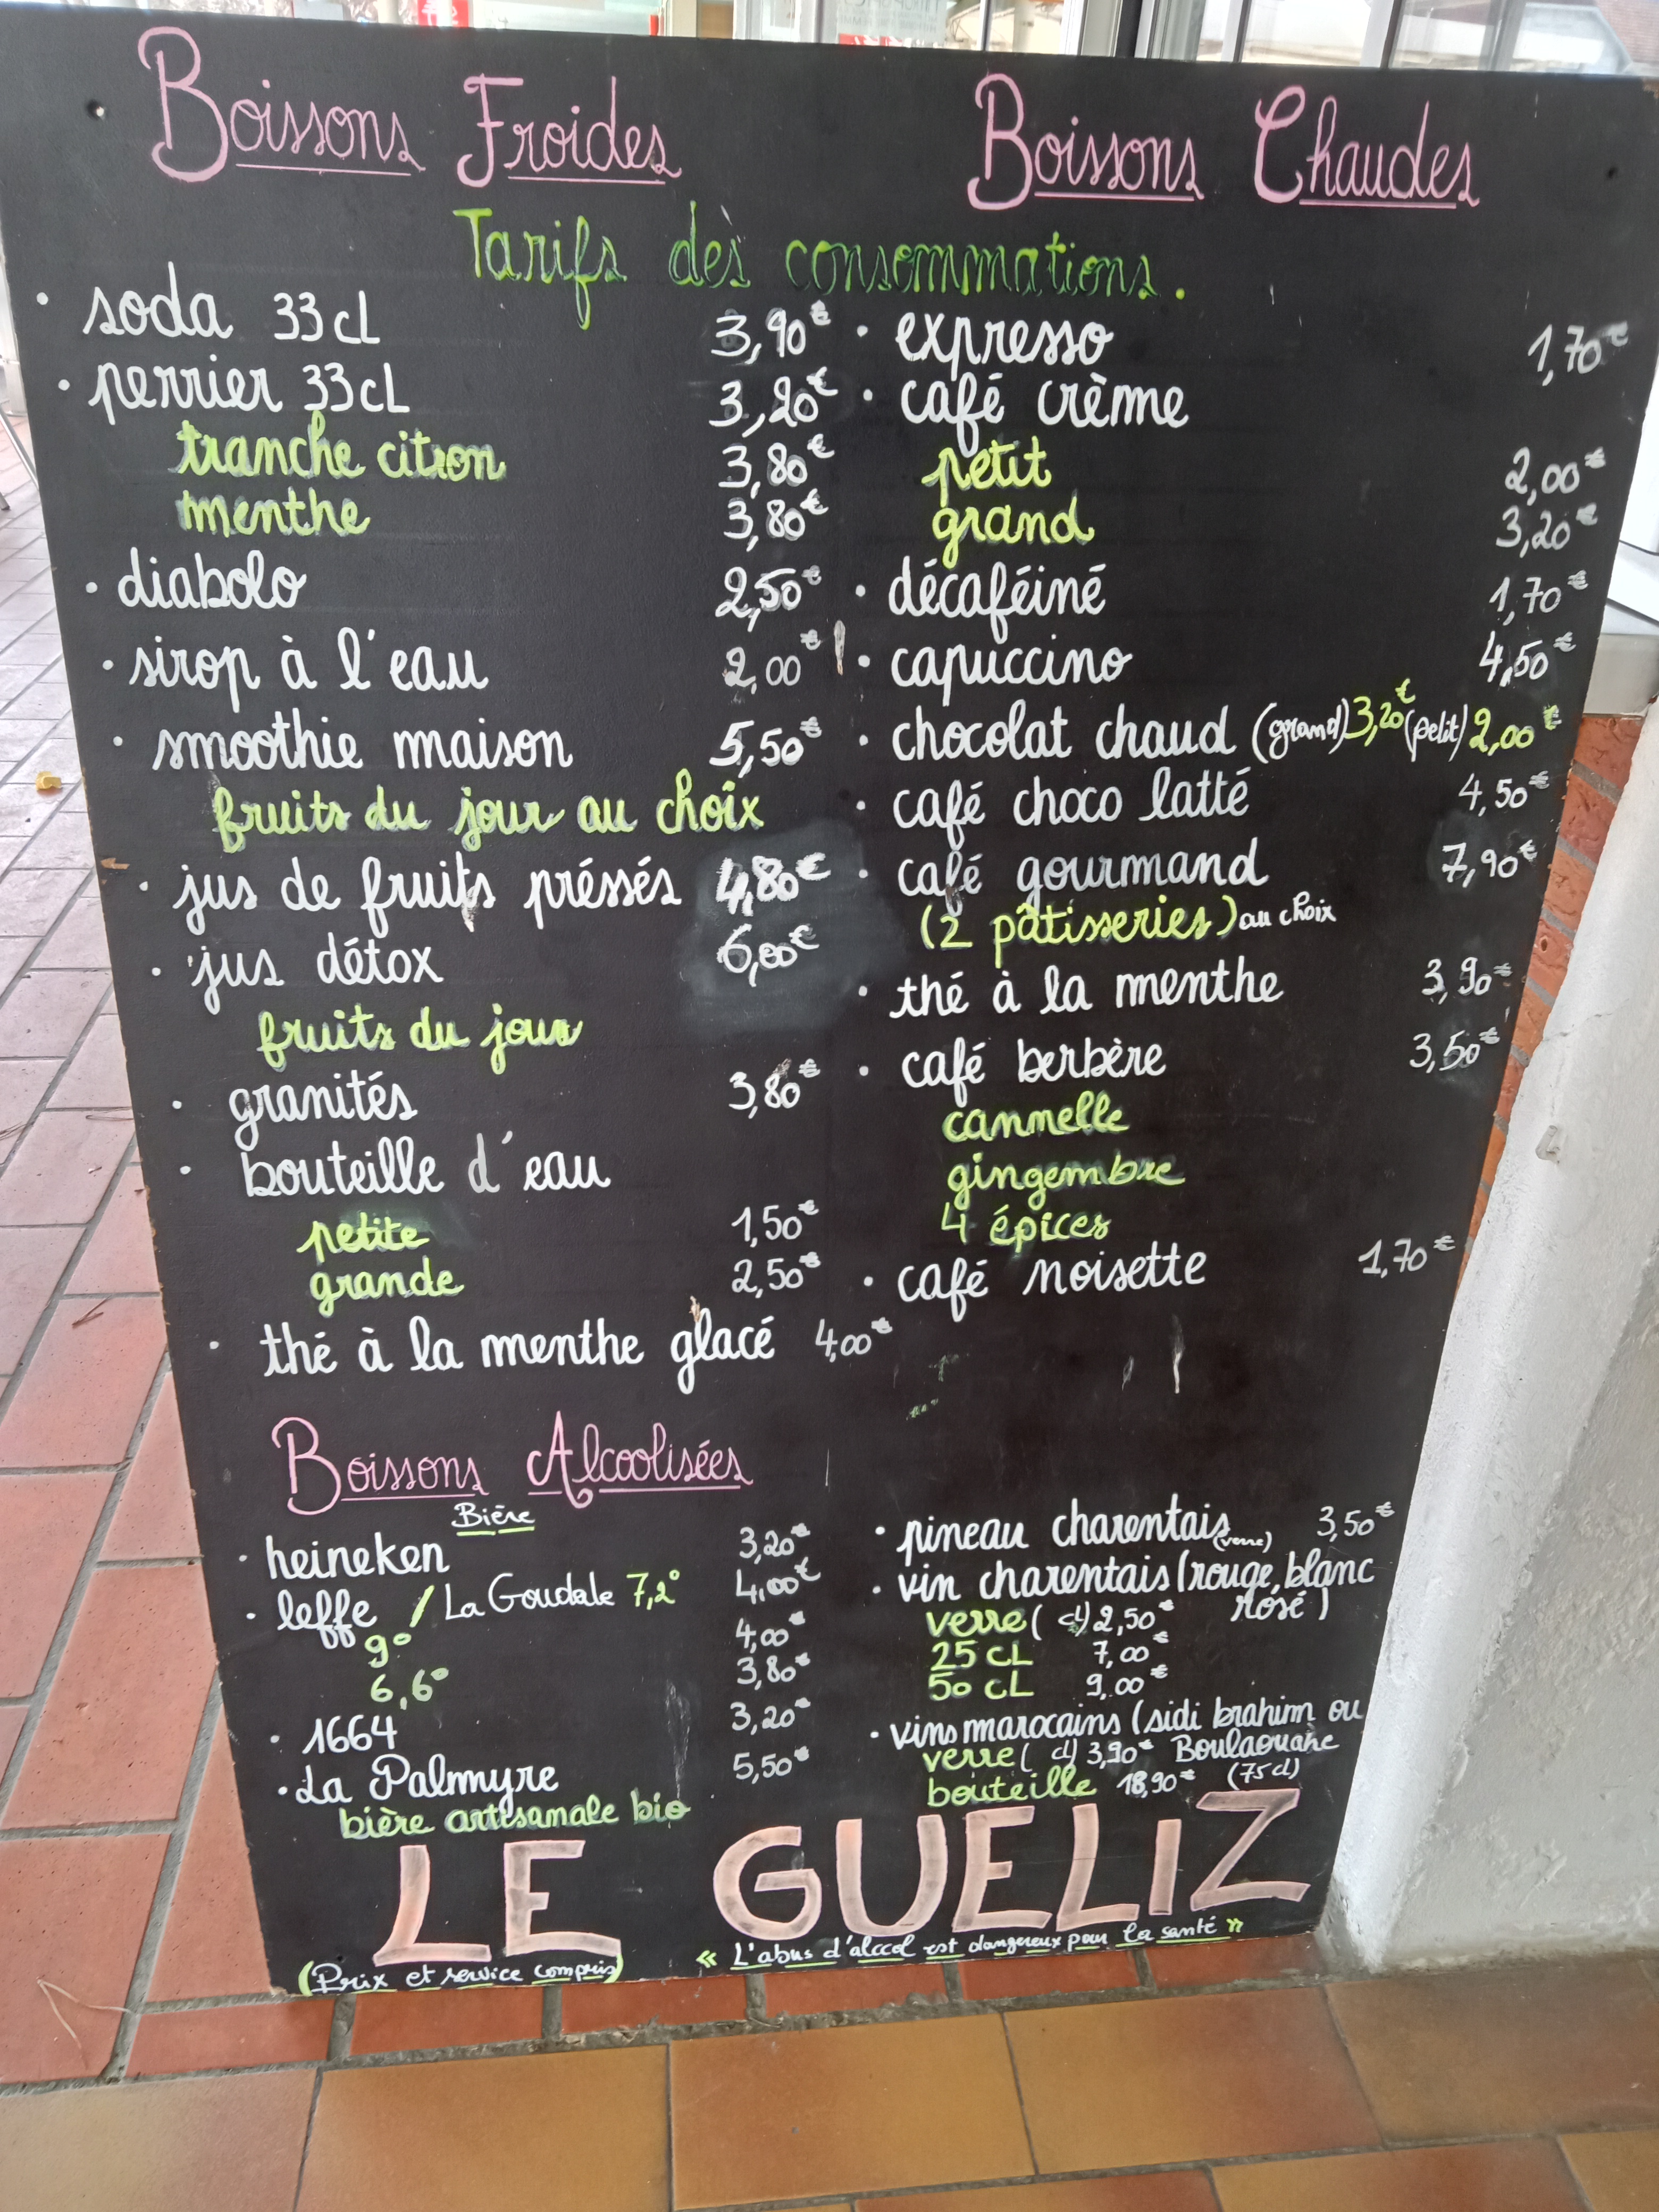 Boissons Froides
Boissons Chaudes
Tarifs des consommations.
· soda 33cL 3,90€
· perrier 33cL 3,20€
tranche citron 3,80€
menthe 3,80€
· diabolo 2,50€
· sirop à l'eau 2,00€
· smoothie maison 5,50€
fruits du jour au choix
· jus de fruits préssés 4,80€
· jus détox 6,00€
fruits du jour
· granités 3,80€
· bouteille d'eau
petite 1,50€
grande 2,50€
· thé à la menthe glacé 4,00€
· expresso 1,70€
· café crème
petit 2,00€
grand 3,20€
· décaféiné 1,70€
· capuccino 4,50€
· chocolat chaud (grand) 3,20€ (petit) 2,00€
· café choco latté 4,50€
· café gourmand 7,90€
(2 pâtisseries) au choix
· thé à la menthe 3,90€
· café berbère 3,50€
cannelle
gingembre
4 épices
· café noisette 1,70€
Boissons Alcoolisées
Bière
· heineken 3,20€
· leffe / La Goudale 7,2° 4,00€
9° 4,00€
6,6° 3,80€
· 1664 3,20€
· La Palmyre 5,50€
bière artisanale bio
· pineau charentais (verre) 3,50€
· vin charentais (rouge, blanc
rosé)
verre ( cl) 2,50€
25 cL 7,00€
50 cL 9,00€
· vins marocains (sidi brahim ou
verre ( cl) 3,90€ Boulaouane
bouteille 18,90€ (75cl)
LE GUELIZ
(Prix et service compris)
« L'abus d'alcool est dangereux pour la santé »